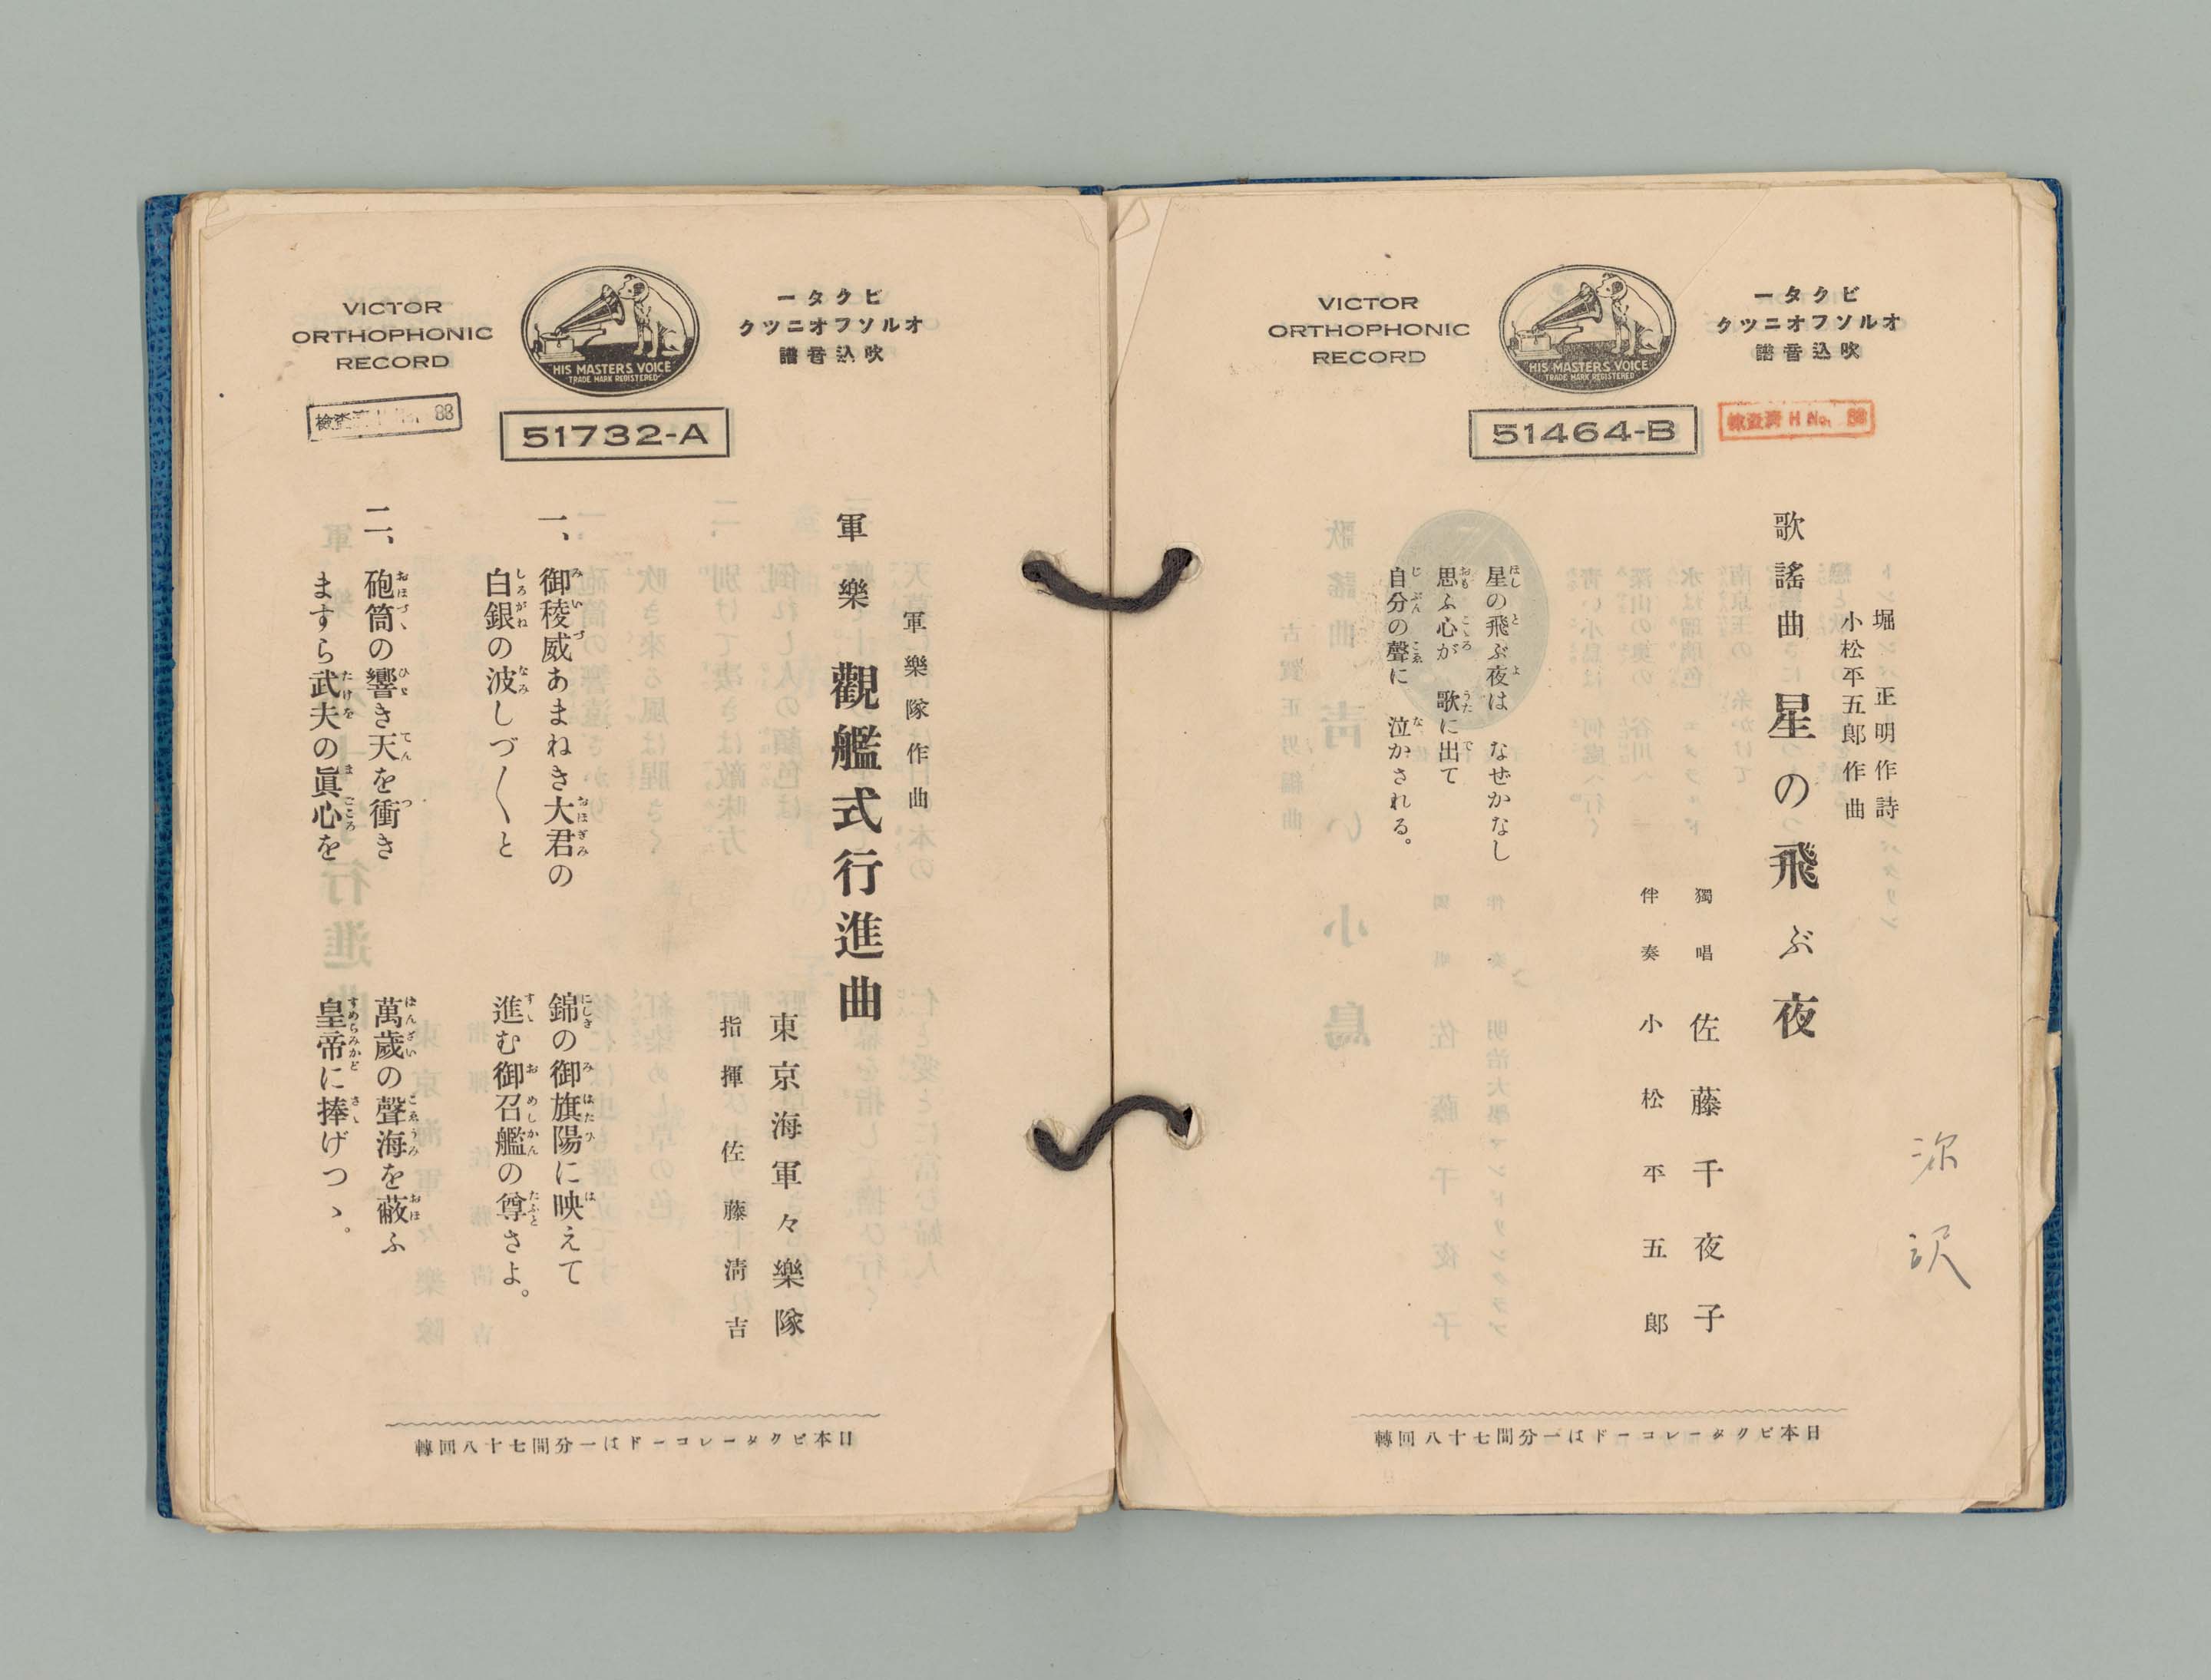 ビクター
オルソフオニツク
吹込音譜
HIS MASTERS VOICE
TRADE MARK REGISTERED
VICTOR
ORTHOPHONIC
RECORD
51464-B
検査済 H No. 88
堀正明作詩
小松平五郎作曲
歌謠曲 星の飛ぶ夜
獨唱 佐藤千夜子
伴奏 小松平五郎
星の飛ぶ夜は なぜかなし
思ふ心が 歌に出て
自分の聲に 泣かされる。
沢
日本ビクターレコードは一分間七十八回轉
ビクター
オルソフオニツク
吹込音譜
HIS MASTERS VOICE
TRADE MARK REGISTERED
VICTOR
ORTHOPHONIC
RECORD
51732-A
検査済 88
軍樂隊作曲
軍樂 觀艦式行進曲
東京海軍々樂隊
指揮 佐藤淸吉
一、御稜威あまねき大君の 錦の御旗陽に映えて
白銀の波しづ〱と 進む御召艦の尊さよ。
二、砲筒の響き天を衝き 萬歲の聲海を蔽ふ
ますら武夫の眞心を 皇帝に捧げつゝ。
日本ビクターレコードは一分間七十八回轉